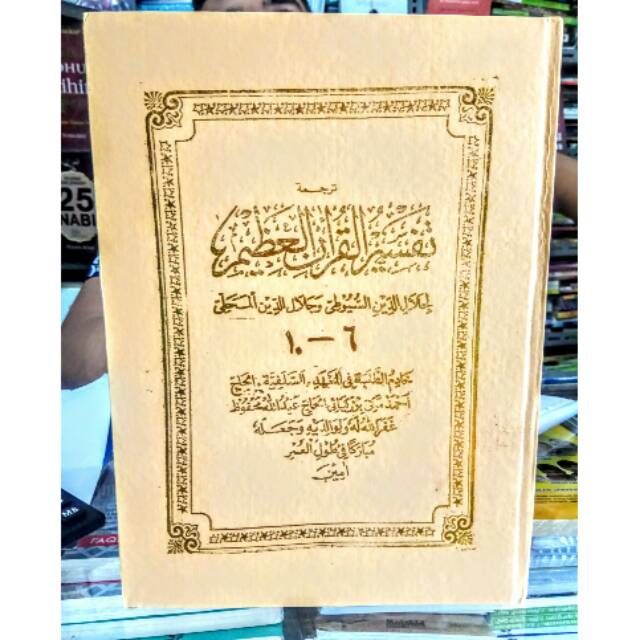 ترجمة
تفسير القرآن العظيم
لجلال الدين السيوطي وجلال الدين المحلي
٦ – ١٠
خادم الطلبة في المعهد السلفية الحاج
أحمد الحاج عبدالله محفوظ
غفر الله له ولوالديه وجعله
مباركا في طول العمر
أمين
25
NABI